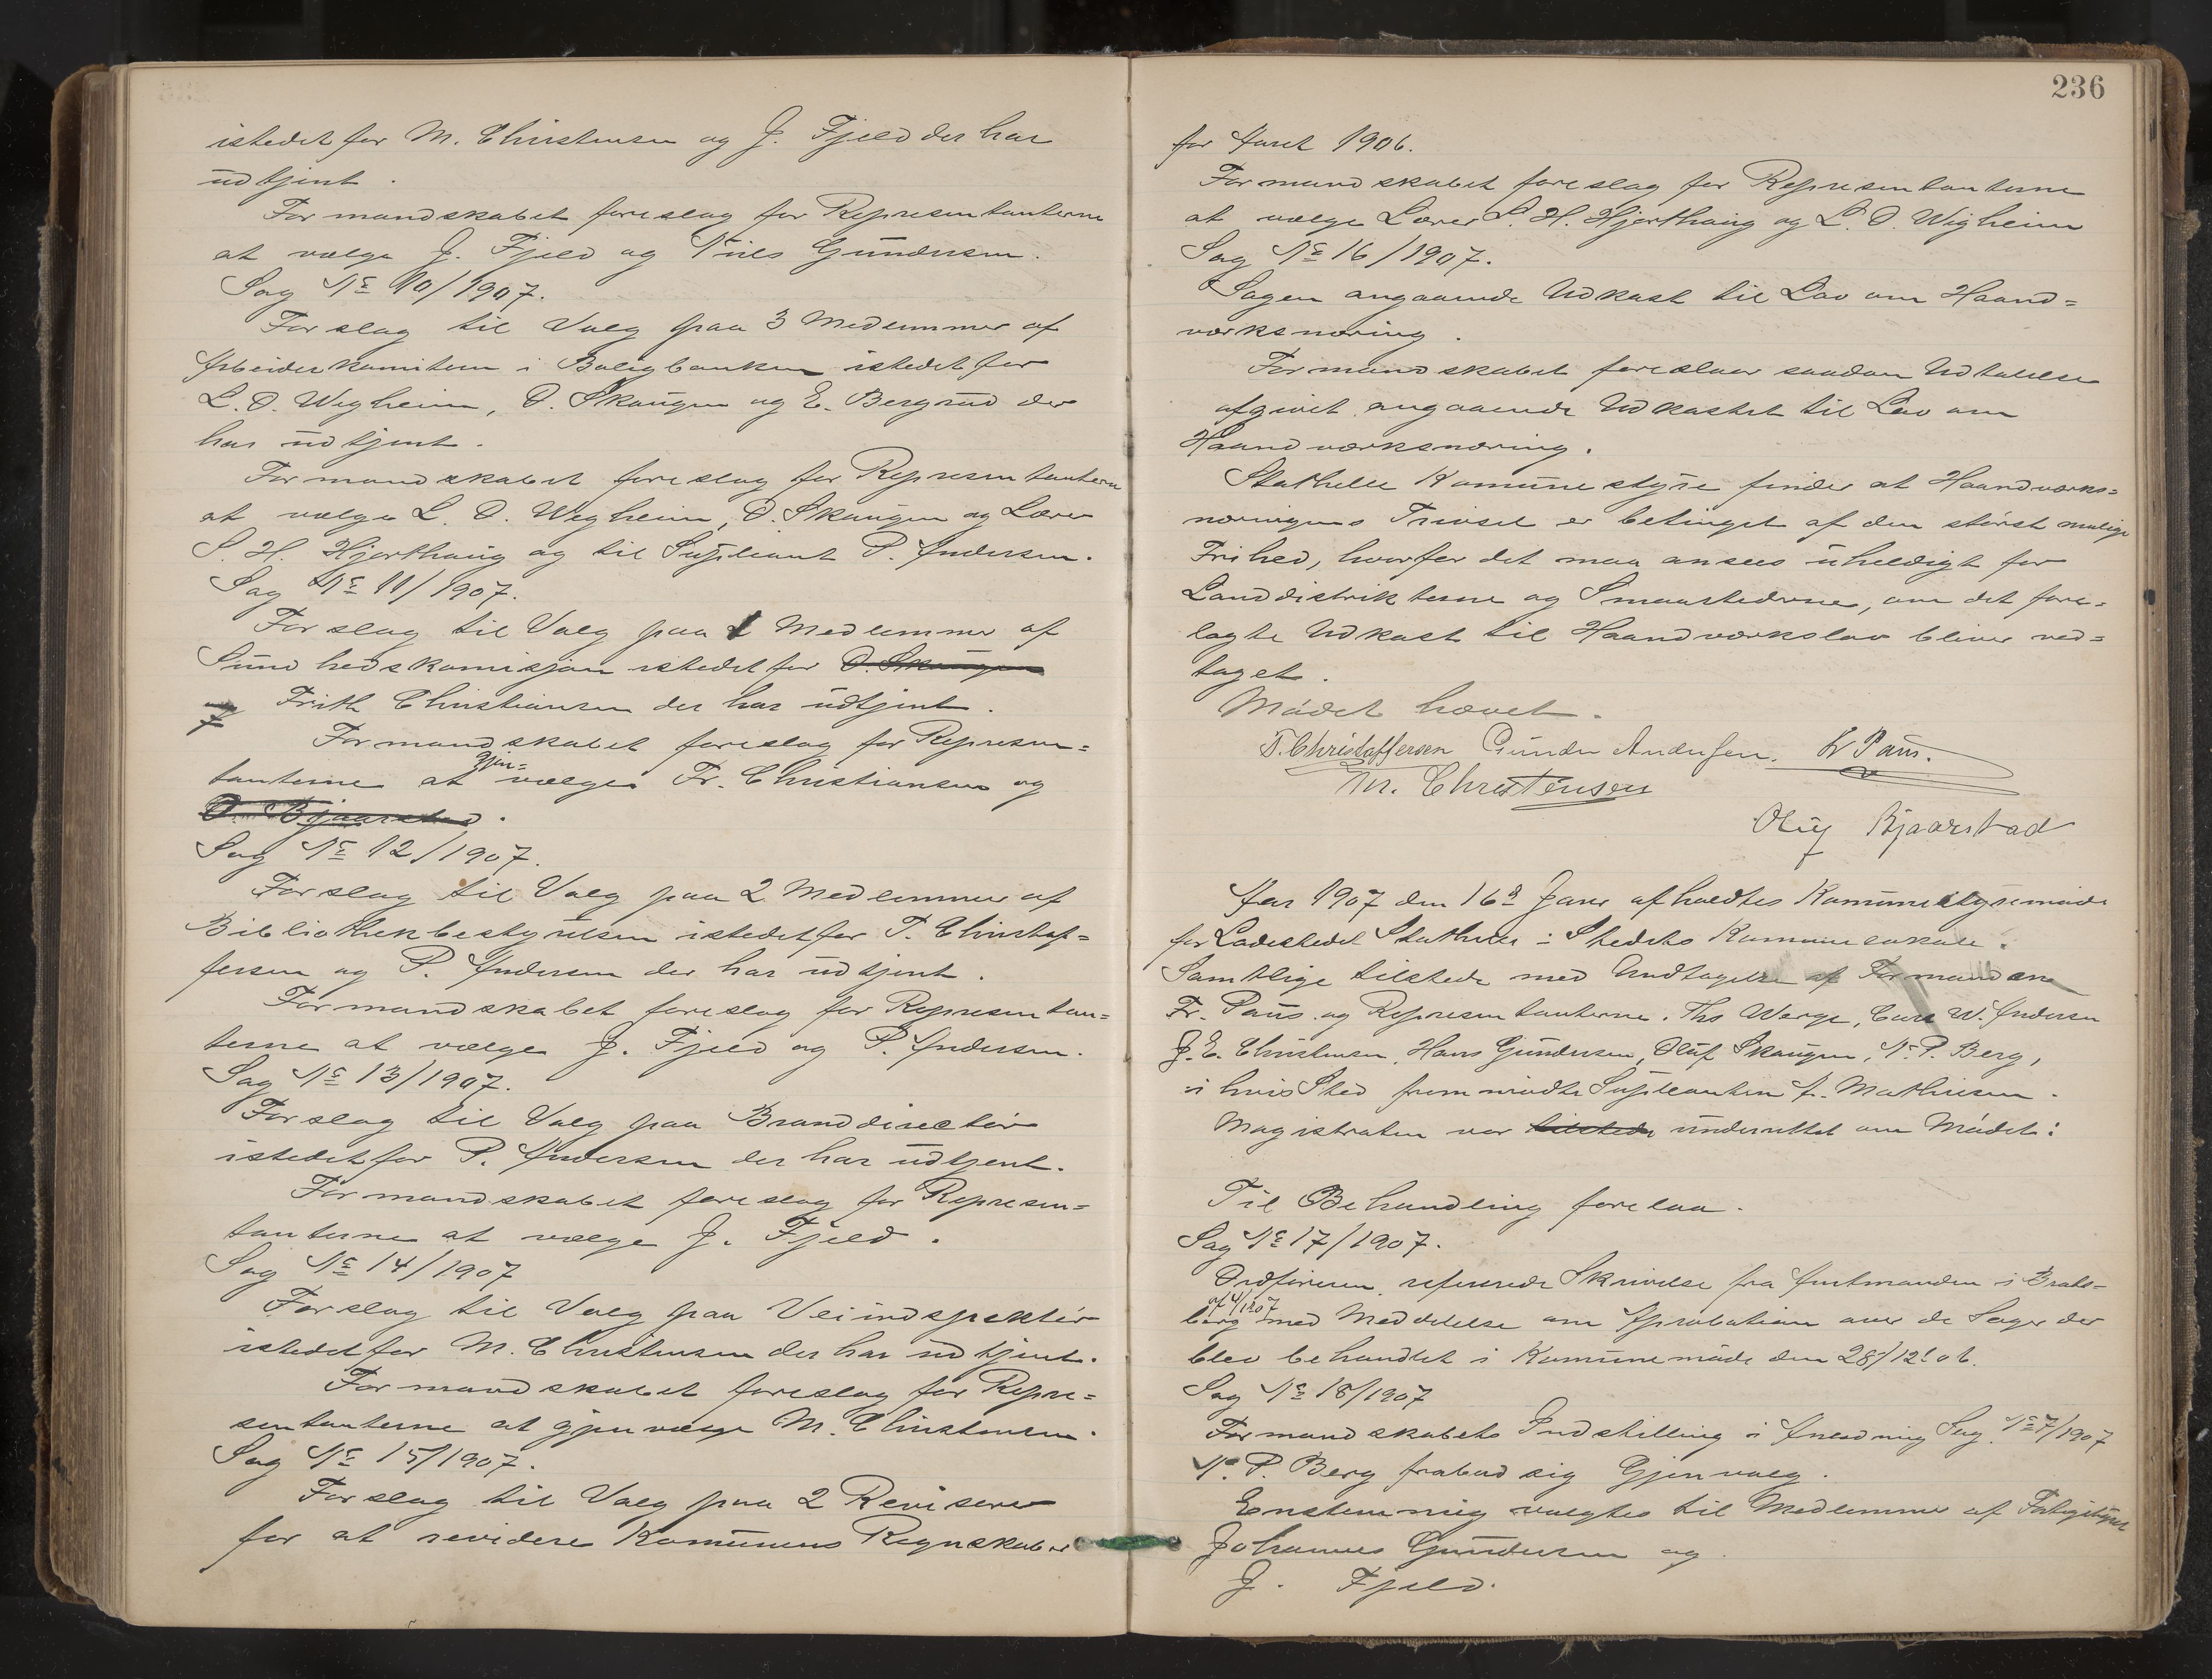 istedet for M. Christensen og J. Fjeld der har
udtjent.
Formandskabet foreslog for Representanterne
at vælge J. Fjeld og Nils Gundersen.
Sag No 10/1907.
Forslag til Valg paa 3 Medlemmer af
Arbeiderkomiteen i Boligbanken istedet for
L. O. Wegheim, O. Skaugen og E. Bergrud der
har udtjent.
Formandskabet foreslog for Representanterne
at vælge L. O. Wegheim, O. Skaugen og Lærer
S. H. Hjorthaug og til Supleant P. Andersen.
Sag No 11/1907.
Forslag til Valg paa 1 Medlemmer af
Sundhedskomisjon istedet for O. Skaugen
og Frith Christiansen der har udtjent.
Formandskabet foreslog for Represen=
tanterne at gjen=vælge Fr. Christiansen og
O. Bjaarstad.
Sag No 12/1907.
Forslag til Valg paa 2 Medlemmer af
Bibliothekbestyrelsen istedet for T. Christof=
fersen og P. Andersen der har udtjent.
Formandskabet foreslog for Representan=
terne at vælge J. Fjeld og P. Andersen.
Sag No 13/1907.
Forslag til Valg paa Branddirectör
istedet for P. Andersen der har udtjent.
Formandskabet foreslog for Represen=
tanterne at vælge J. Fjeld.
Sag No 14/1907
Forslag til Valg paa Veiindspektör
istedet for M. Christensen der har udtjent.
Formandskabet foreslog for Repre=
sentanterne at gjenvælge M. Christensen.
Sag No 15/1907.
Forslag til Valg paa 2 Revisorer
for at revidere Komunens Regnskaber
236
for Aaret 1906.
Formandskabet foreslog for Representanterne
at vælge Lærer S. H. Hjorthaug og L. O. Wigheim
Sag No 16/1907.
Sagen angaaende Udkast til Lov om Haand=
værksnæring.
Formandskabet foreslaar saadan Udtalelse
afgivet angaaende Udkastet til Lov om
Haandværksnæring.
Stathelle Komunestyre finder at Haandværks=
næringens Trivsel er betinget af den störst mulige
Frihed, hvorfor det maa ansees uheldigt for
Landdistrikterne og Smaastederne, om det fore=
lagte Udkast til Haandværkslov bliver ved=
taget.
Mödet hævet.
T. Christoffersen Gunder Andersen. Fr Paus.
M. Christensen
Oluf Bjaarstad
Aar 1907 den 16de Januar afholdtes Komunestyremöde
for Ladestedet Stathelle i Stedets Komunelokale.
Samtlige tilstede med Undtagelse af Formændene
Fr. Paus og Representanterne. Ths Warge, Carl W. Andersen
J. E. Christensen, Hans Gundersen, Oluf Skaugen, N. P. Berg,
i hvis Sted fremmödte Supleanten A. Mathiesen.
Magistraten var tilstede underrettet om Mödet:
Til Behandling forelaa.
Sag No 17/1907.
Ordföreren refererede Skrivelse fra Amtmanden i Brats=
berg af 4/1 1907 med Meddelelse om Aprobation over de Sager der
blev behandlet i Komunemöde den 28/12 06.
Sag No 18/1907
Formandskabets Indstilling i Anledning Sag. No 7/1907
N. P. Berg frabad sig Gjenvalg.
Enstemmig valgtes til Medlemmer af
Johannes Gundersen og
J. Fjeld.